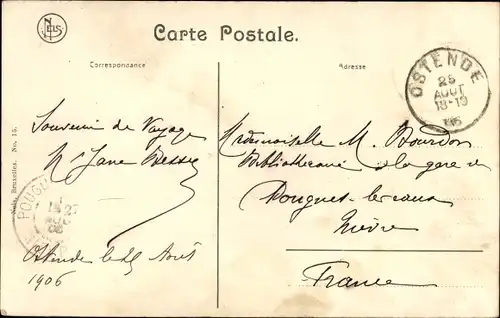 NELS
Carte Postale.
Correspondance
Adresse
OSTENDE
25
AOUT
18-19
Nels, Bruxelles. No. 15.
Souvenir de Voyage
Jane
Ostende le 25 Août
1906
Mademoiselle M. Bourdon
Bibliothécaire à la gare de
Pougues-les-eaux
Nièvre
France
POUGU